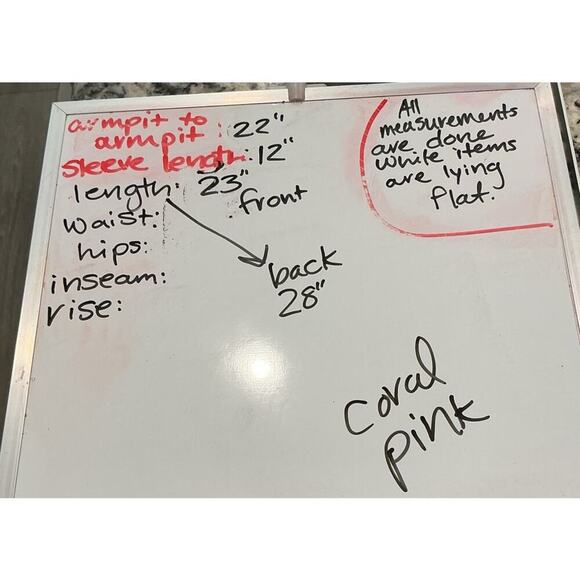 armpit to
armpit : 22"
sleeve length: 12"
length: 23"
front
waist:
hips:
back
28"
inseam:
rise:
All
measurements
are done
while items
are lying
flat.
Coral
pink